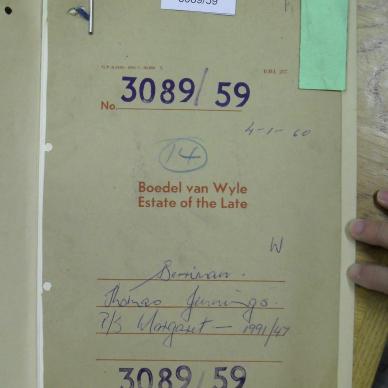 3089/59
No. 3089/59
4-1-60
14
Boedel van Wyle
Estate of the Late
W
Thomas Jennings.
P/S Margaret - 1991/47
3089/59